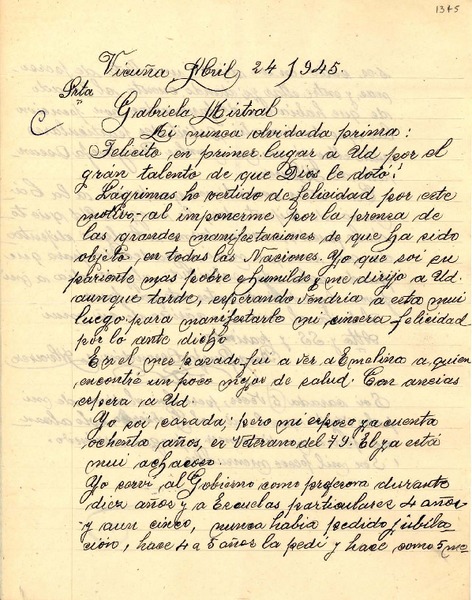 1345
Vicuña Abril 24 1945.
Srta
Gabriela Mistral
Mi nunca olvidada prima:
Felicito, en primer lugar a Ud por el
gran talento de que Dios le dotó,
Lágrimas he vertido de felicidad por este
motivo, al imponerme por la prensa de
las grandes manifestaciones de que ha sido
objeto en todas las Naciones. Yo que soi su
pariente mas pobre e humilde, me dirijo a Ud.
aunque tarde, esperando vendria a esta mui
luego para manifestarle mi sincera felicidad
por lo ante dicho
En el mes pasado fui a ver a Emelina a quien
encontré un poco mejor de salud. Con ancias
espera a Ud.
Yo soi casada; pero mi esposo ya cuenta
ochenta años, es Veterano del 79. El ya está
mui achacoso.
Yo serví al Gobierno como profesora durante
diez años y a Escuelas particulares 4 años
y aun cinco, nunca habia pedido jubila
ción, hace 4 a 5 años la pedí y hace como 5 me